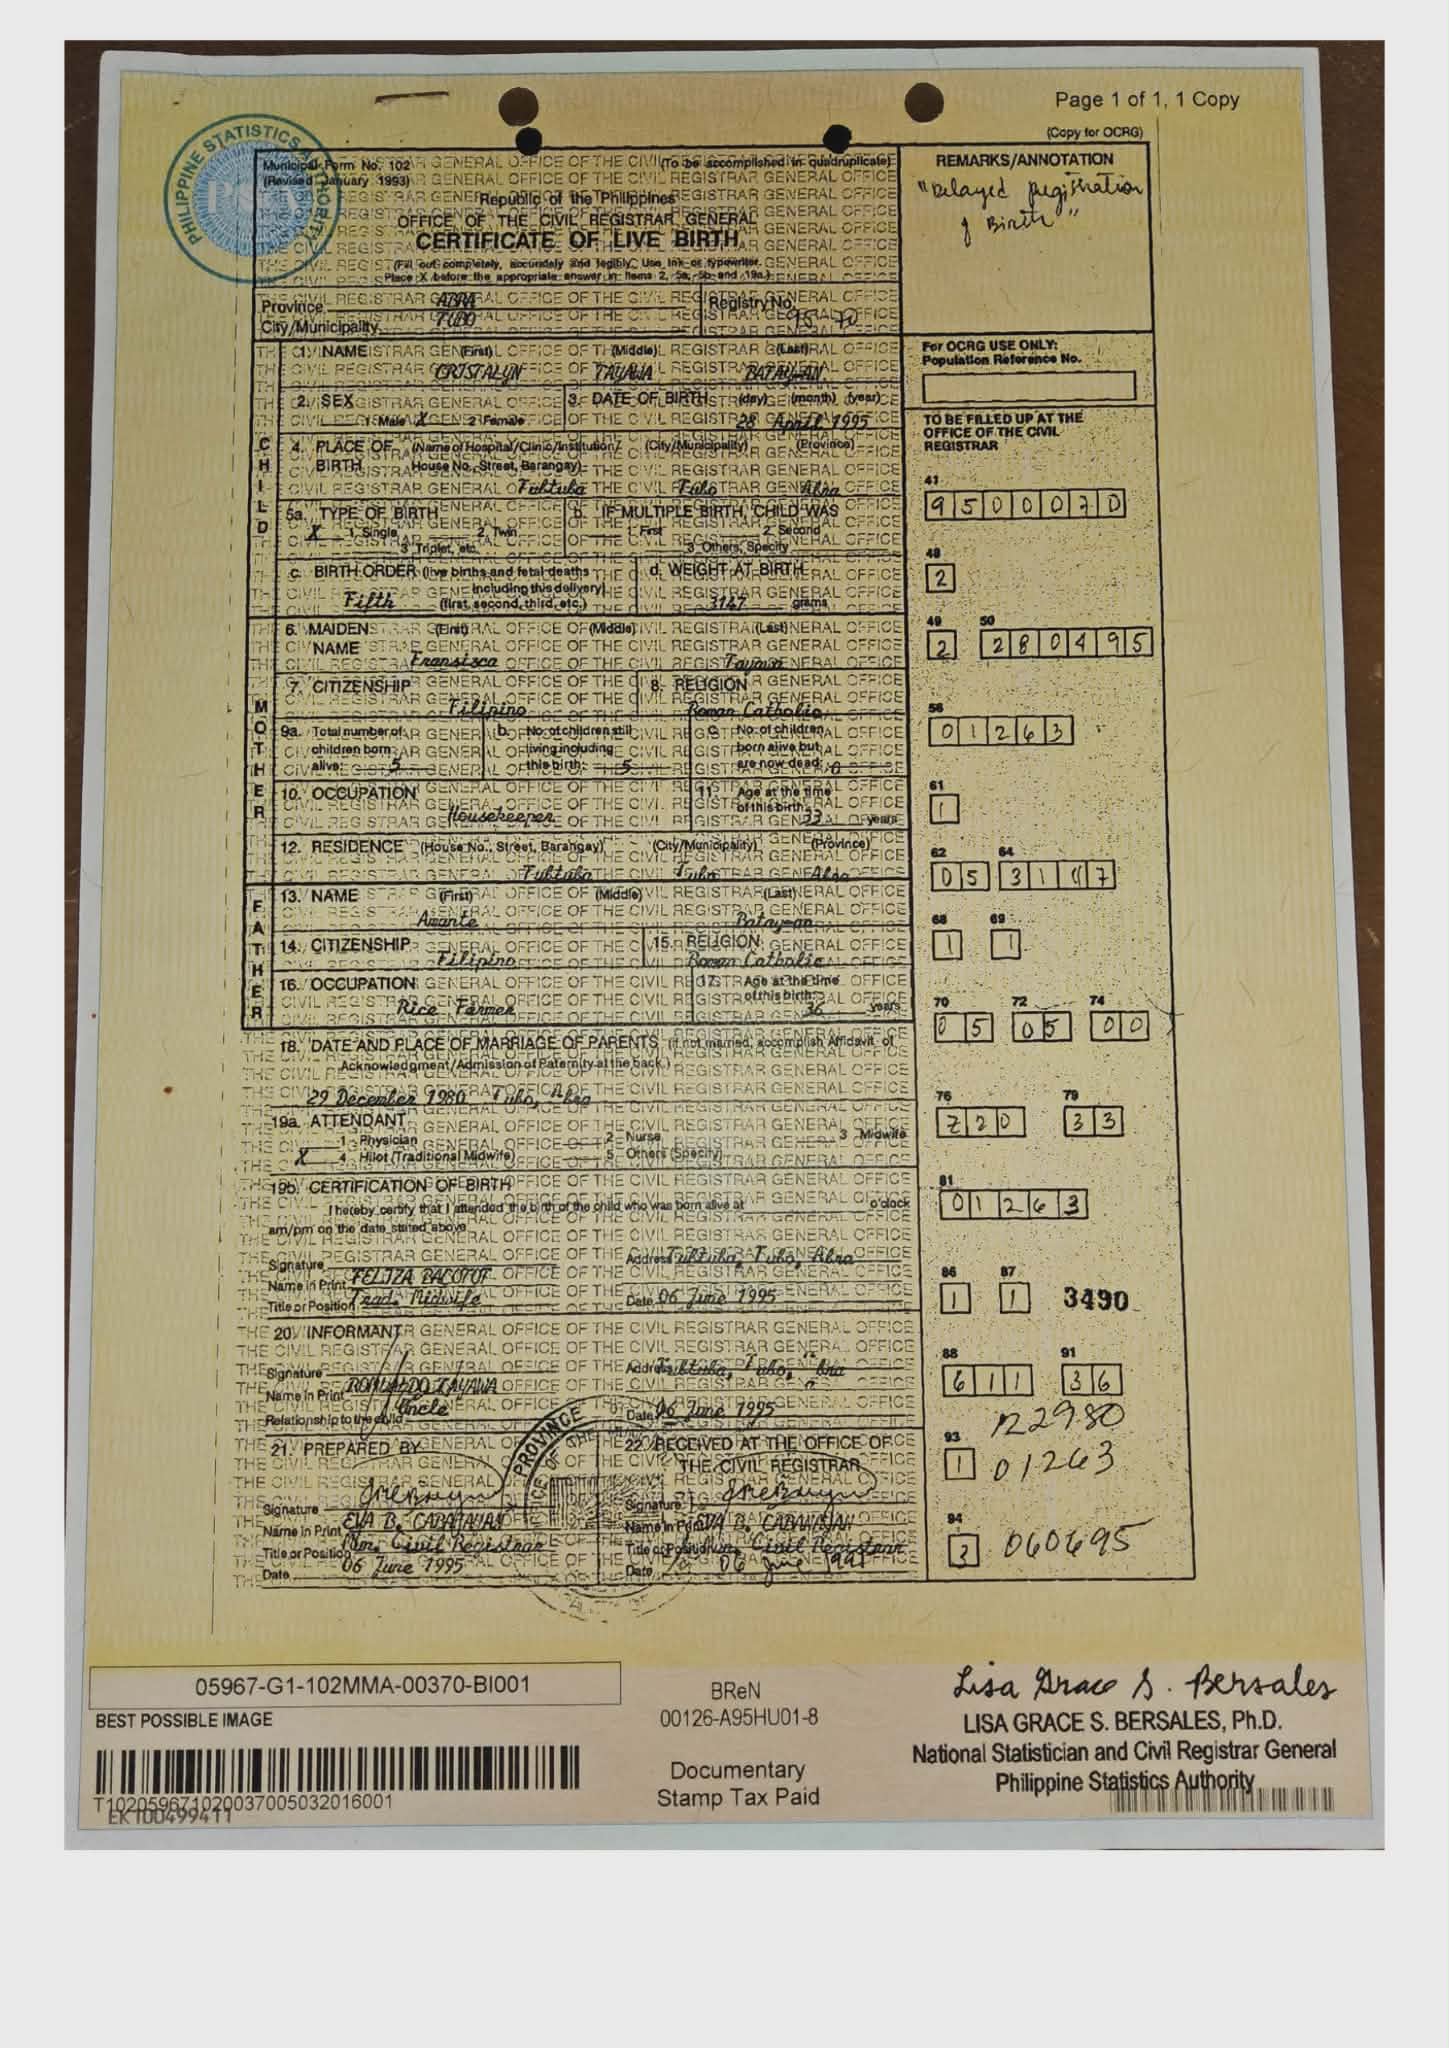 Page 1 of 1, 1 Copy
(Copy for OCRG)
PHILIPPINE STATISTICS AUTHORITY
Municipal Form No. 102
(Revised January 1993)
(To be accomplished in quadruplicate)
Republic of the Philippines
OFFICE OF THE CIVIL REGISTRAR GENERAL
CERTIFICATE OF LIVE BIRTH
(Fill out completely, accurately and legibly. Use ink or typewriter.
Place X before the appropriate answer in items 2, 5a, 5b and 19a.)
REMARKS/ANNOTATION
"Delayed Registration
of Birth"
Province ABRA
City/Municipality TUBO
Registry No. 95 70
For OCRG USE ONLY:
Population Reference No.
CHILD
1. NAME (First) (Middle) (Last)
CRISTALYN TAYAWA BATAY-AN
2. SEX
1 Male X 2 Female
3. DATE OF BIRTH (day) (month) (year)
28 April 1995
4. PLACE OF BIRTH (Name of Hospital/Clinic/Institution/ (City/Municipality) (Province)
House No., Street, Barangay)
Tubtuba Tubo Abra
5a. TYPE OF BIRTH
X 1 Single 2 Twin
3 Triplet, etc.
b. IF MULTIPLE BIRTH, CHILD WAS
1 First 2 Second
3 Others, Specify
c. BIRTH ORDER (live births and fetal deaths
including this delivery)
Fifth (first, second, third, etc.)
d. WEIGHT AT BIRTH
3147 grams
MOTHER
6. MAIDEN NAME (First) (Middle) (Last)
Fransisca Tayawa
7. CITIZENSHIP
Filipino
8. RELIGION
Roman Catholic
9a. Total number of
children born
alive: 5
b. No. of children still
living including
this birth: 5
c. No. of children
born alive but
are now dead: 0
10. OCCUPATION
Housekeeper
11. Age at the time
of this birth: 33 years
12. RESIDENCE (House No., Street, Barangay) (City/Municipality) (Province)
Tubtuba Tubo Abra
FATHER
13. NAME (First) (Middle) (Last)
Amante Batay-an
14. CITIZENSHIP
Filipino
15. RELIGION
Roman Catholic
16. OCCUPATION
Rice Farmer
17. Age at the time
of this birth: 36 years
18. DATE AND PLACE OF MARRIAGE OF PARENTS (If not married, accomplish Affidavit of
Acknowledgment/Admission of Paternity at the back.)
29 December 1980 Tubo, Abra
19a. ATTENDANT
1 Physician 2 Nurse 3 Midwife
X 4 Hilot (Traditional Midwife) 5 Others (Specify)
19b. CERTIFICATION OF BIRTH
I hereby certify that I attended the birth of the child who was born alive at o'clock
am/pm on the date stated above.
Signature
Address Tubtuba, Tubo, Abra
Name in Print FELIZA BACOTOT
Title or Position Trad. Midwife
Date 06 June 1995
20. INFORMANT
Signature
Address Tubtuba, Tubo, Abra
Name in Print ROMUALDO TAYAWA
Relationship to the child Uncle
Date 06 June 1995
21. PREPARED BY
Signature
Name in Print EVA B. CABANAYAN
Title or Position Mun. Civil Registrar
Date 06 June 1995
22. RECEIVED AT THE OFFICE OF
THE CIVIL REGISTRAR
Signature
Name in Print EVA B. CABANAYAN
Title or Position Mun. Civil Registrar
Date 06 June 1995
PROVINCE
TO BE FILLED UP AT THE
OFFICE OF THE CIVIL
REGISTRAR
41
9500070
48
2
49 50
2 280495
56
01263
61
1
62 64
05 3147
68 69
1 1
70 72 74
05 05 00
76 79
220 33
81
01263
86 87
1 1 3490
88 91
611 36
122980
93
1 01263
94
3 060695
05967-G1-102MMA-00370-BI001
BEST POSSIBLE IMAGE
T102059671020037005032016001
EK100499411
BReN
00126-A95HU01-8
Documentary
Stamp Tax Paid
Lisa Grace S. Bersales
LISA GRACE S. BERSALES, Ph.D.
National Statistician and Civil Registrar General
Philippine Statistics Authority